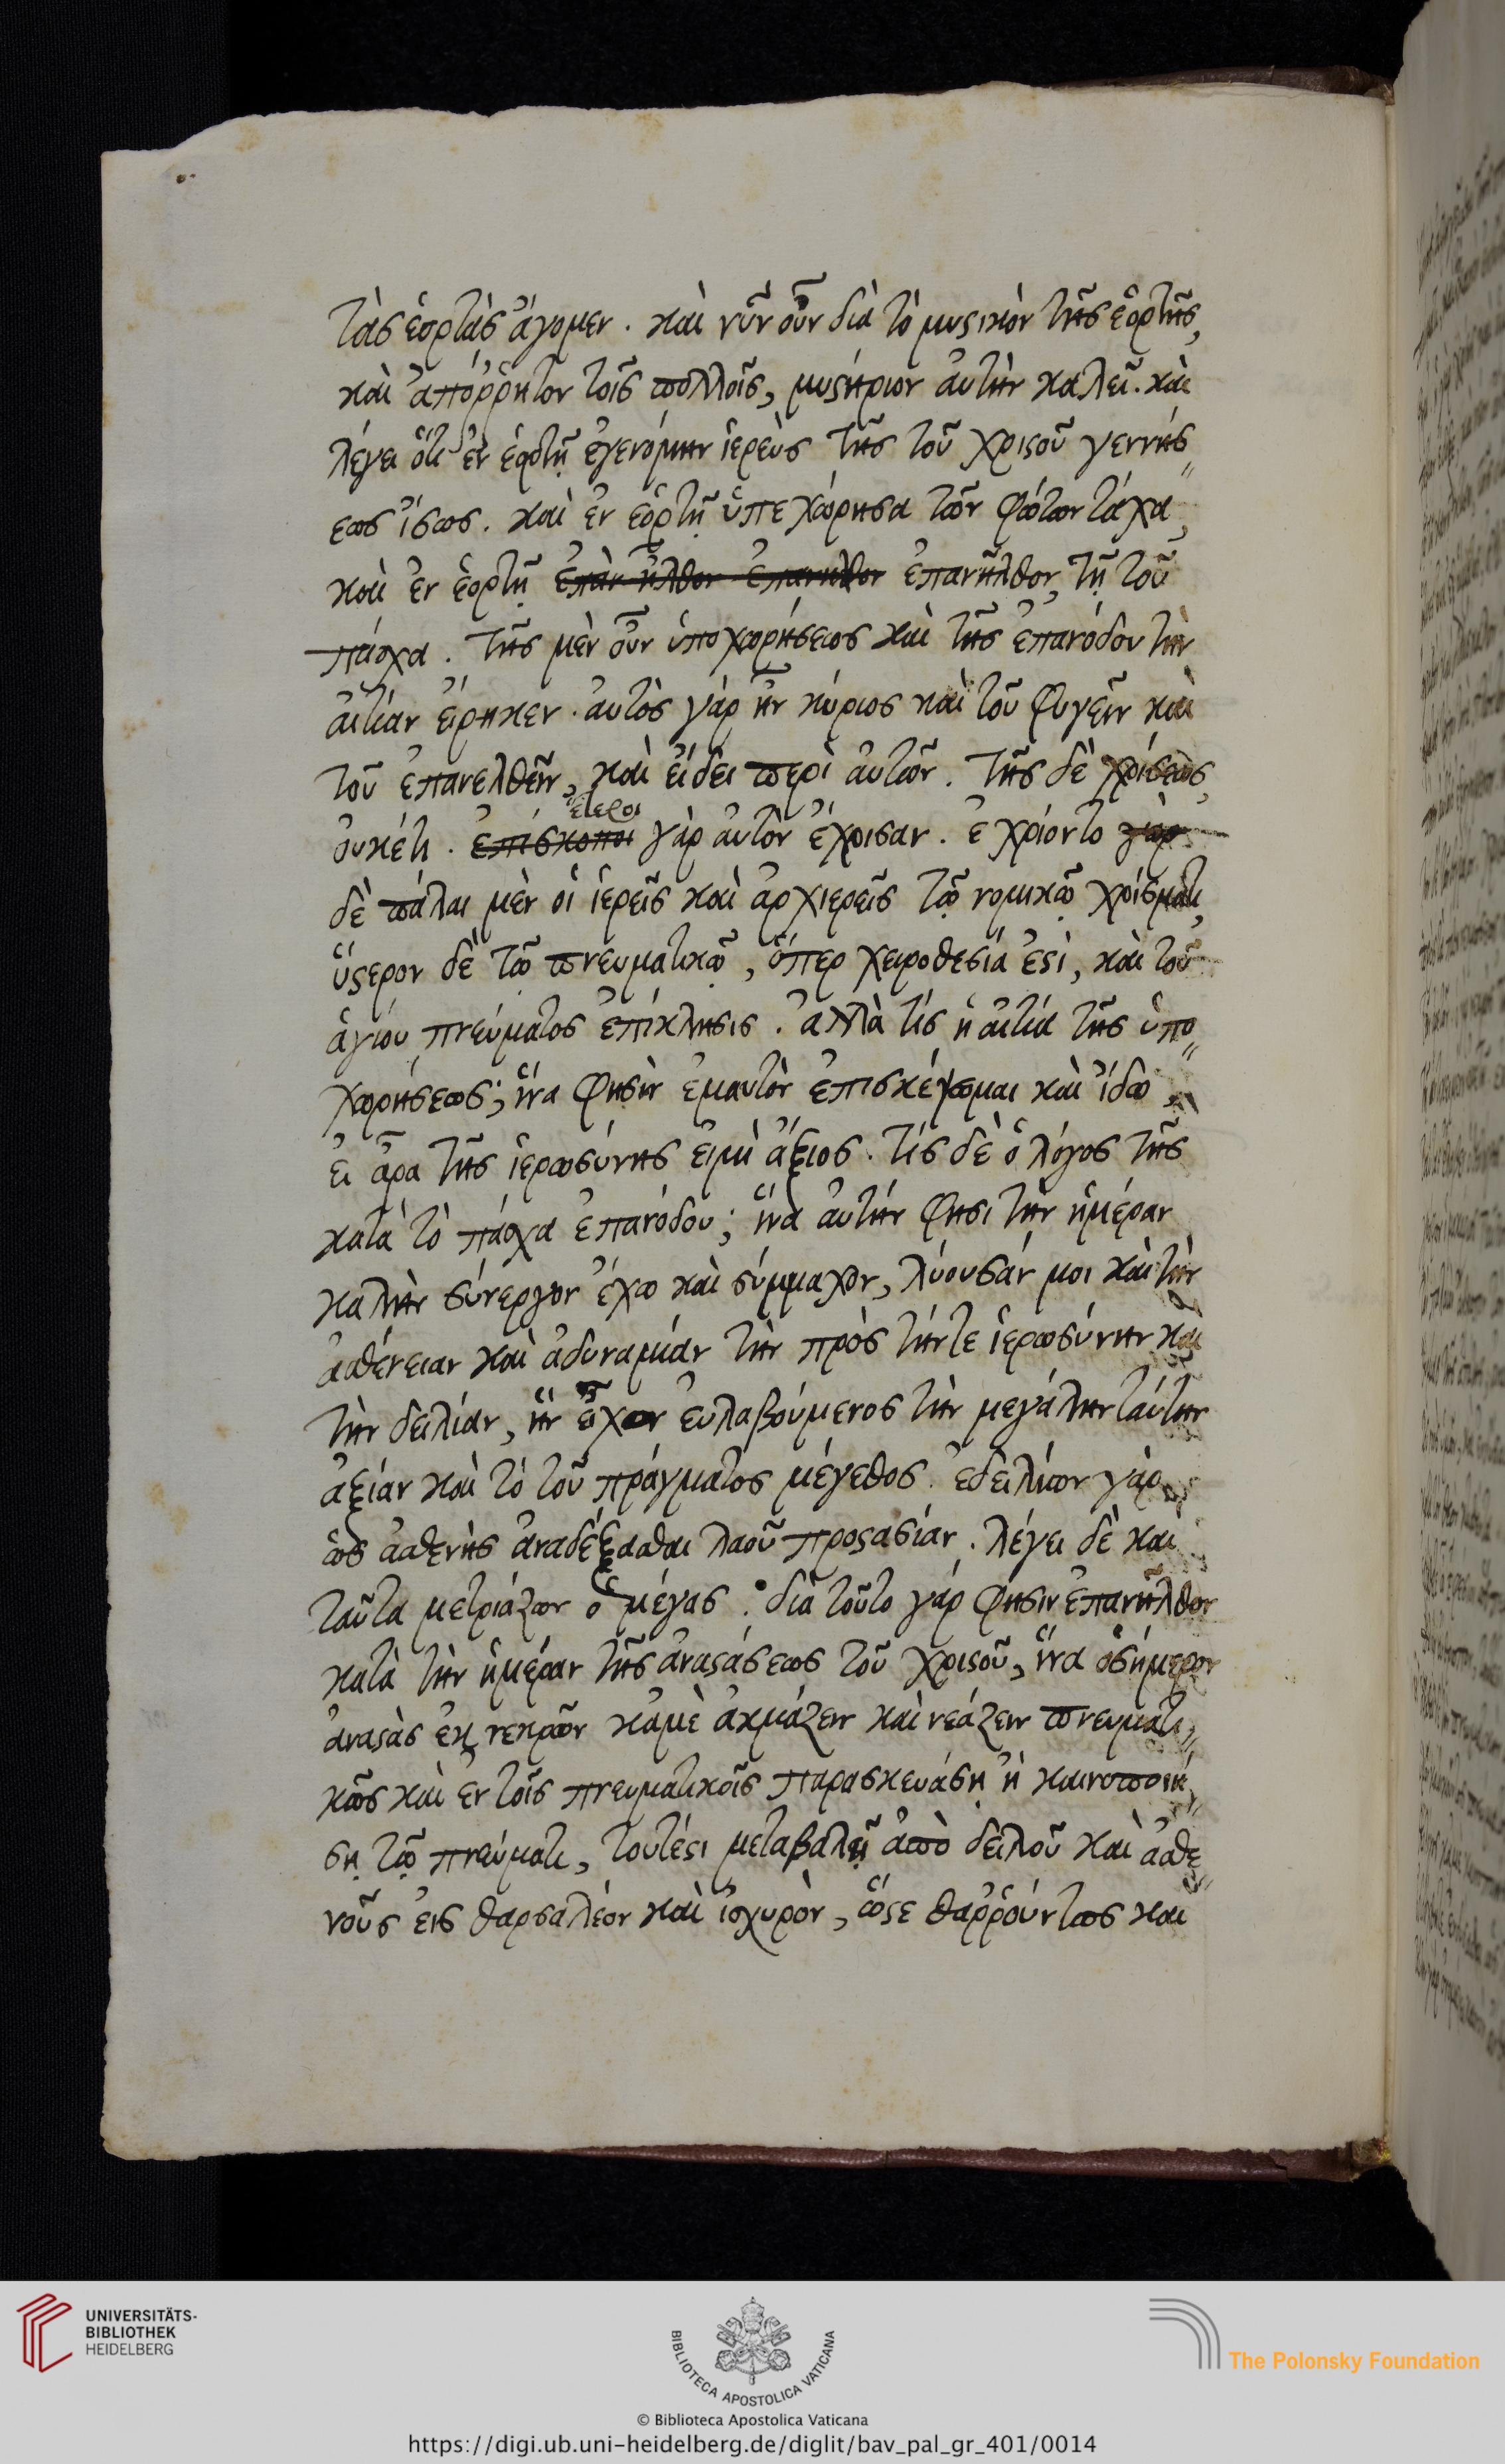 τὰς ἑορτὰς ἄγομεν. καὶ νῦν οὖν διὰ τὸ μυστικὸν τῆς ἑορτῆς,
καὶ ἀπόῤῥητον τοῖς πολλοῖς, μυστήριον αὐτὴν καλεῖ. καὶ
λέγει ὅτι ἐν ἑορτῇ ἐγενόμην ἱερεὺς τῆς τοῦ χριστοῦ γεννήσ
εως ἴσως. καὶ ἐν ἑορτῇ ὑπεχώρησα τῶν φώτων τάχα,
καὶ ἐν ἑορτῇ ἐπὰν ἦλθον ἐπανηλθον ἐπανῆλθον, τῇ τοῦ
πάσχα. τῆς μὲν οὖν ὑποχωρήσεως καὶ τῆς ἐπανόδου τὴν
αἰτίαν εἴρηκεν. αὐτὸς γὰρ ἦν κύριος καὶ τοῦ φυγεῖν καὶ
τοῦ ἐπανελθεῖν, καὶ εἴδει περὶ αὐτῶν. τῆς δὲ χρίσεως,
ἕτεροι
οὐκέτι. ἐπίσκοποι γὰρ αὐτὸν ἔχρισαν. ἐχρίοντο γὰρ
δὲ πάλαι μὲν οἱ ἱερεῖς καὶ ἀρχιερεῖς τῷ νομικῷ χρίσματι,
ὕστερον δὲ τῷ πνευματικῷ, ὅπερ χειροθεσία ἐστὶ, καὶ τοῦ
ἁγίου πνεύματος ἐπίκλησις. ἀλλὰ τίς ἡ αἰτία τῆς ὑπο
χωρήσεως; ἵνα φησὶν ἐμαυτὸν ἐπισκέψωμαι καὶ ἴδω,
εἰ ἆρα τῆς ἱερωσύνης εἰμὶ ἄξιος. τίς δὲ ὁ λόγος τῆς
κατὰ τὸ πάσχα ἐπανόδου; ἵνα αὐτήν φησι τὴν ἡμέραν
καλὴν σύνεργον ἔχω καὶ σύμμαχον, λύουσάν μοι καὶ τὴν
ἀσθένειαν καὶ ἀδυναμίαν τὴν πρὸς τήν τε ἱερωσύνην καὶ
τὴν δειλίαν, ἣν εἶχον εὐλαβούμενος τὴν μεγάλην ταύτην
ἀξίαν καὶ τὸ τοῦ πράγματος μέγεθος. ἐδειλίων γὰρ
ὡς ἀσθενὴς ἀναδέξασθαι λαοῦ προστασίαν. λέγει δὲ καὶ
ταῦτα μετριάζων ὁ μέγας. διὰ τοῦτο γάρ φησιν ἐπανῆλθον
κατὰ τὴν ἡμέραν τῆς ἀναστάσεως τοῦ χριστοῦ, ἵνα ὁ σήμερον
ἀναστὰς ἐκ νεκρῶν κἀμὲ ἀκμάζειν καὶ νεάζειν πνευματι
κῶς καὶ ἐν τοῖς πνευματικοῖς παρασκευάσῃ ἢ καινοποιή
σῃ τῷ πνεύματι, τουτέστι μεταβαλῇ ἀπὸ δειλοῦ καὶ ἀσθε
νοῦς εἰς θαρσαλέον καὶ ἰσχυρὸν, ὥστε θαῤῥούντως καὶ
UNIVERSITÄTS-
BIBLIOTHEK
HEIDELBERG
BIBLIOTECA APOSTOLICA VATICANA
The Polonsky Foundation
© Biblioteca Apostolica Vaticana
https://digi.ub.uni-heidelberg.de/diglit/bav_pal_gr_401/0014